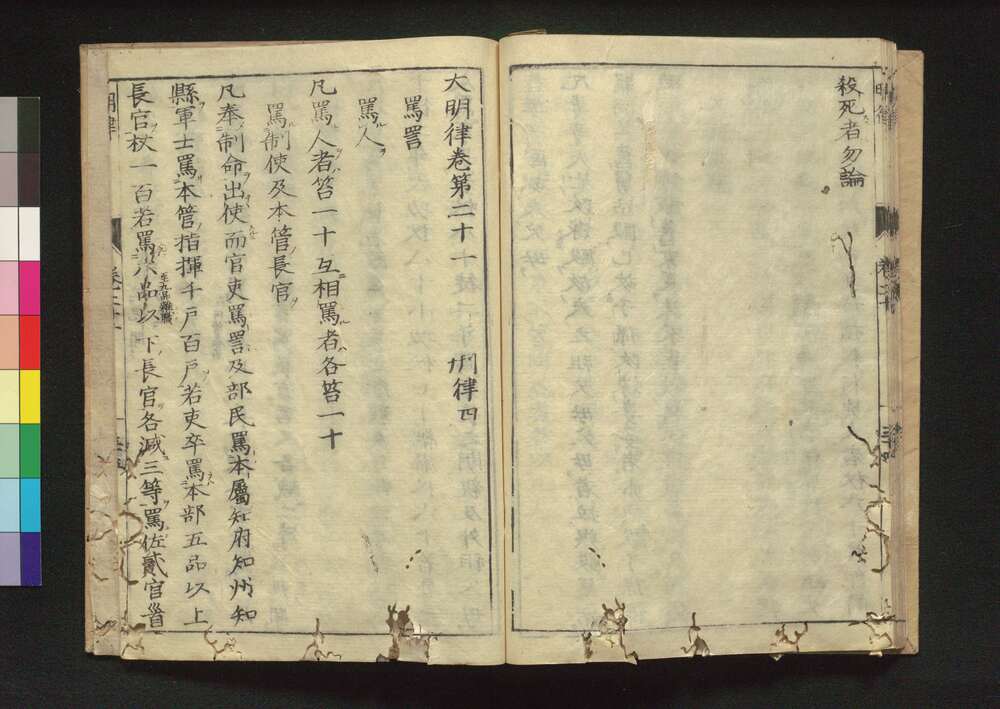 殺死者勿論
大明律卷第二十一 刑律四
罵詈
罵人
凡罵人者笞一十互相罵者各笞一十
罵制使及本管長官
凡奉制命出使而官吏罵詈及部民罵本屬知府知州知
縣軍士罵本管指揮千戶百戶若吏卒罵本部五品以上
長官杖一百若罵六品以下長官各減三等罵佐貳官首